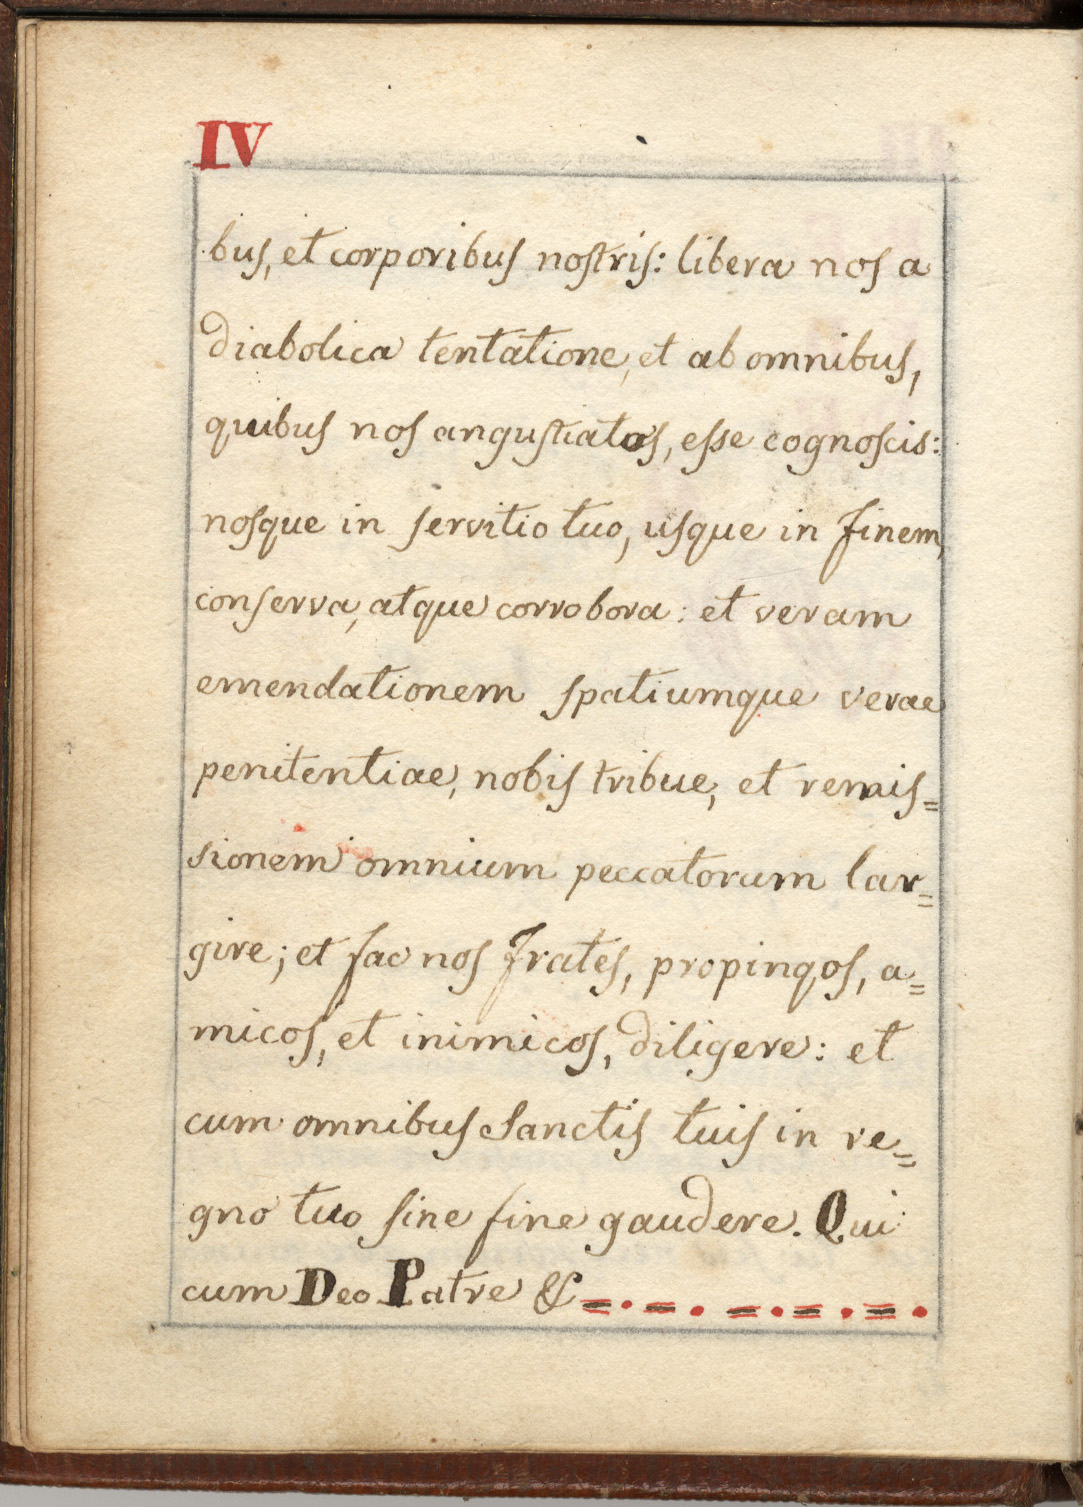 IV
bus, et corporibus nostris: libera nos a
diabolica tentatione, et ab omnibus,
quibus nos angustiatos, esse cognoscis:
nosque in servitio tuo, usque in finem,
conserva, atque corrobora: et veram
emendationem spatiumque verae
penitentiae, nobis tribue, et remis=
sionem omnium peccatorum lar=
gire; et fac nos frates, propinqos, a=
micos, et inimicos, diligere: et
cum omnibus Sanctis tuis in re=
gno tuo sine fine gaudere. Qui
cum Deo Patre &=.=.=.=.=.